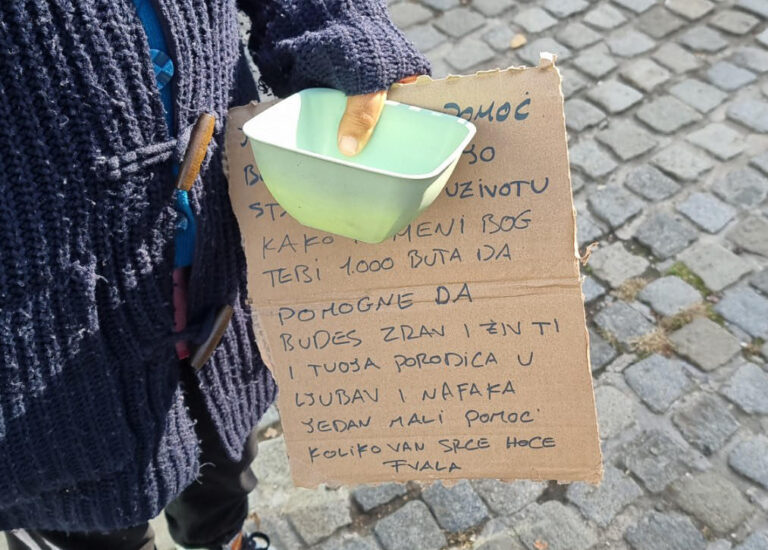 POMOĆ
UZIVOTU
KAKO MENI BOG
TEBI 1.000 BUTA DA
POMOGNE DA
BUDES ZRAV I ŽIV TI
I TVOJA PORODICA U
LJUBAV I NAFAKA
JEDAN MALI POMOĆ
KOLIKO VAN SRCE HOCE
FVALA